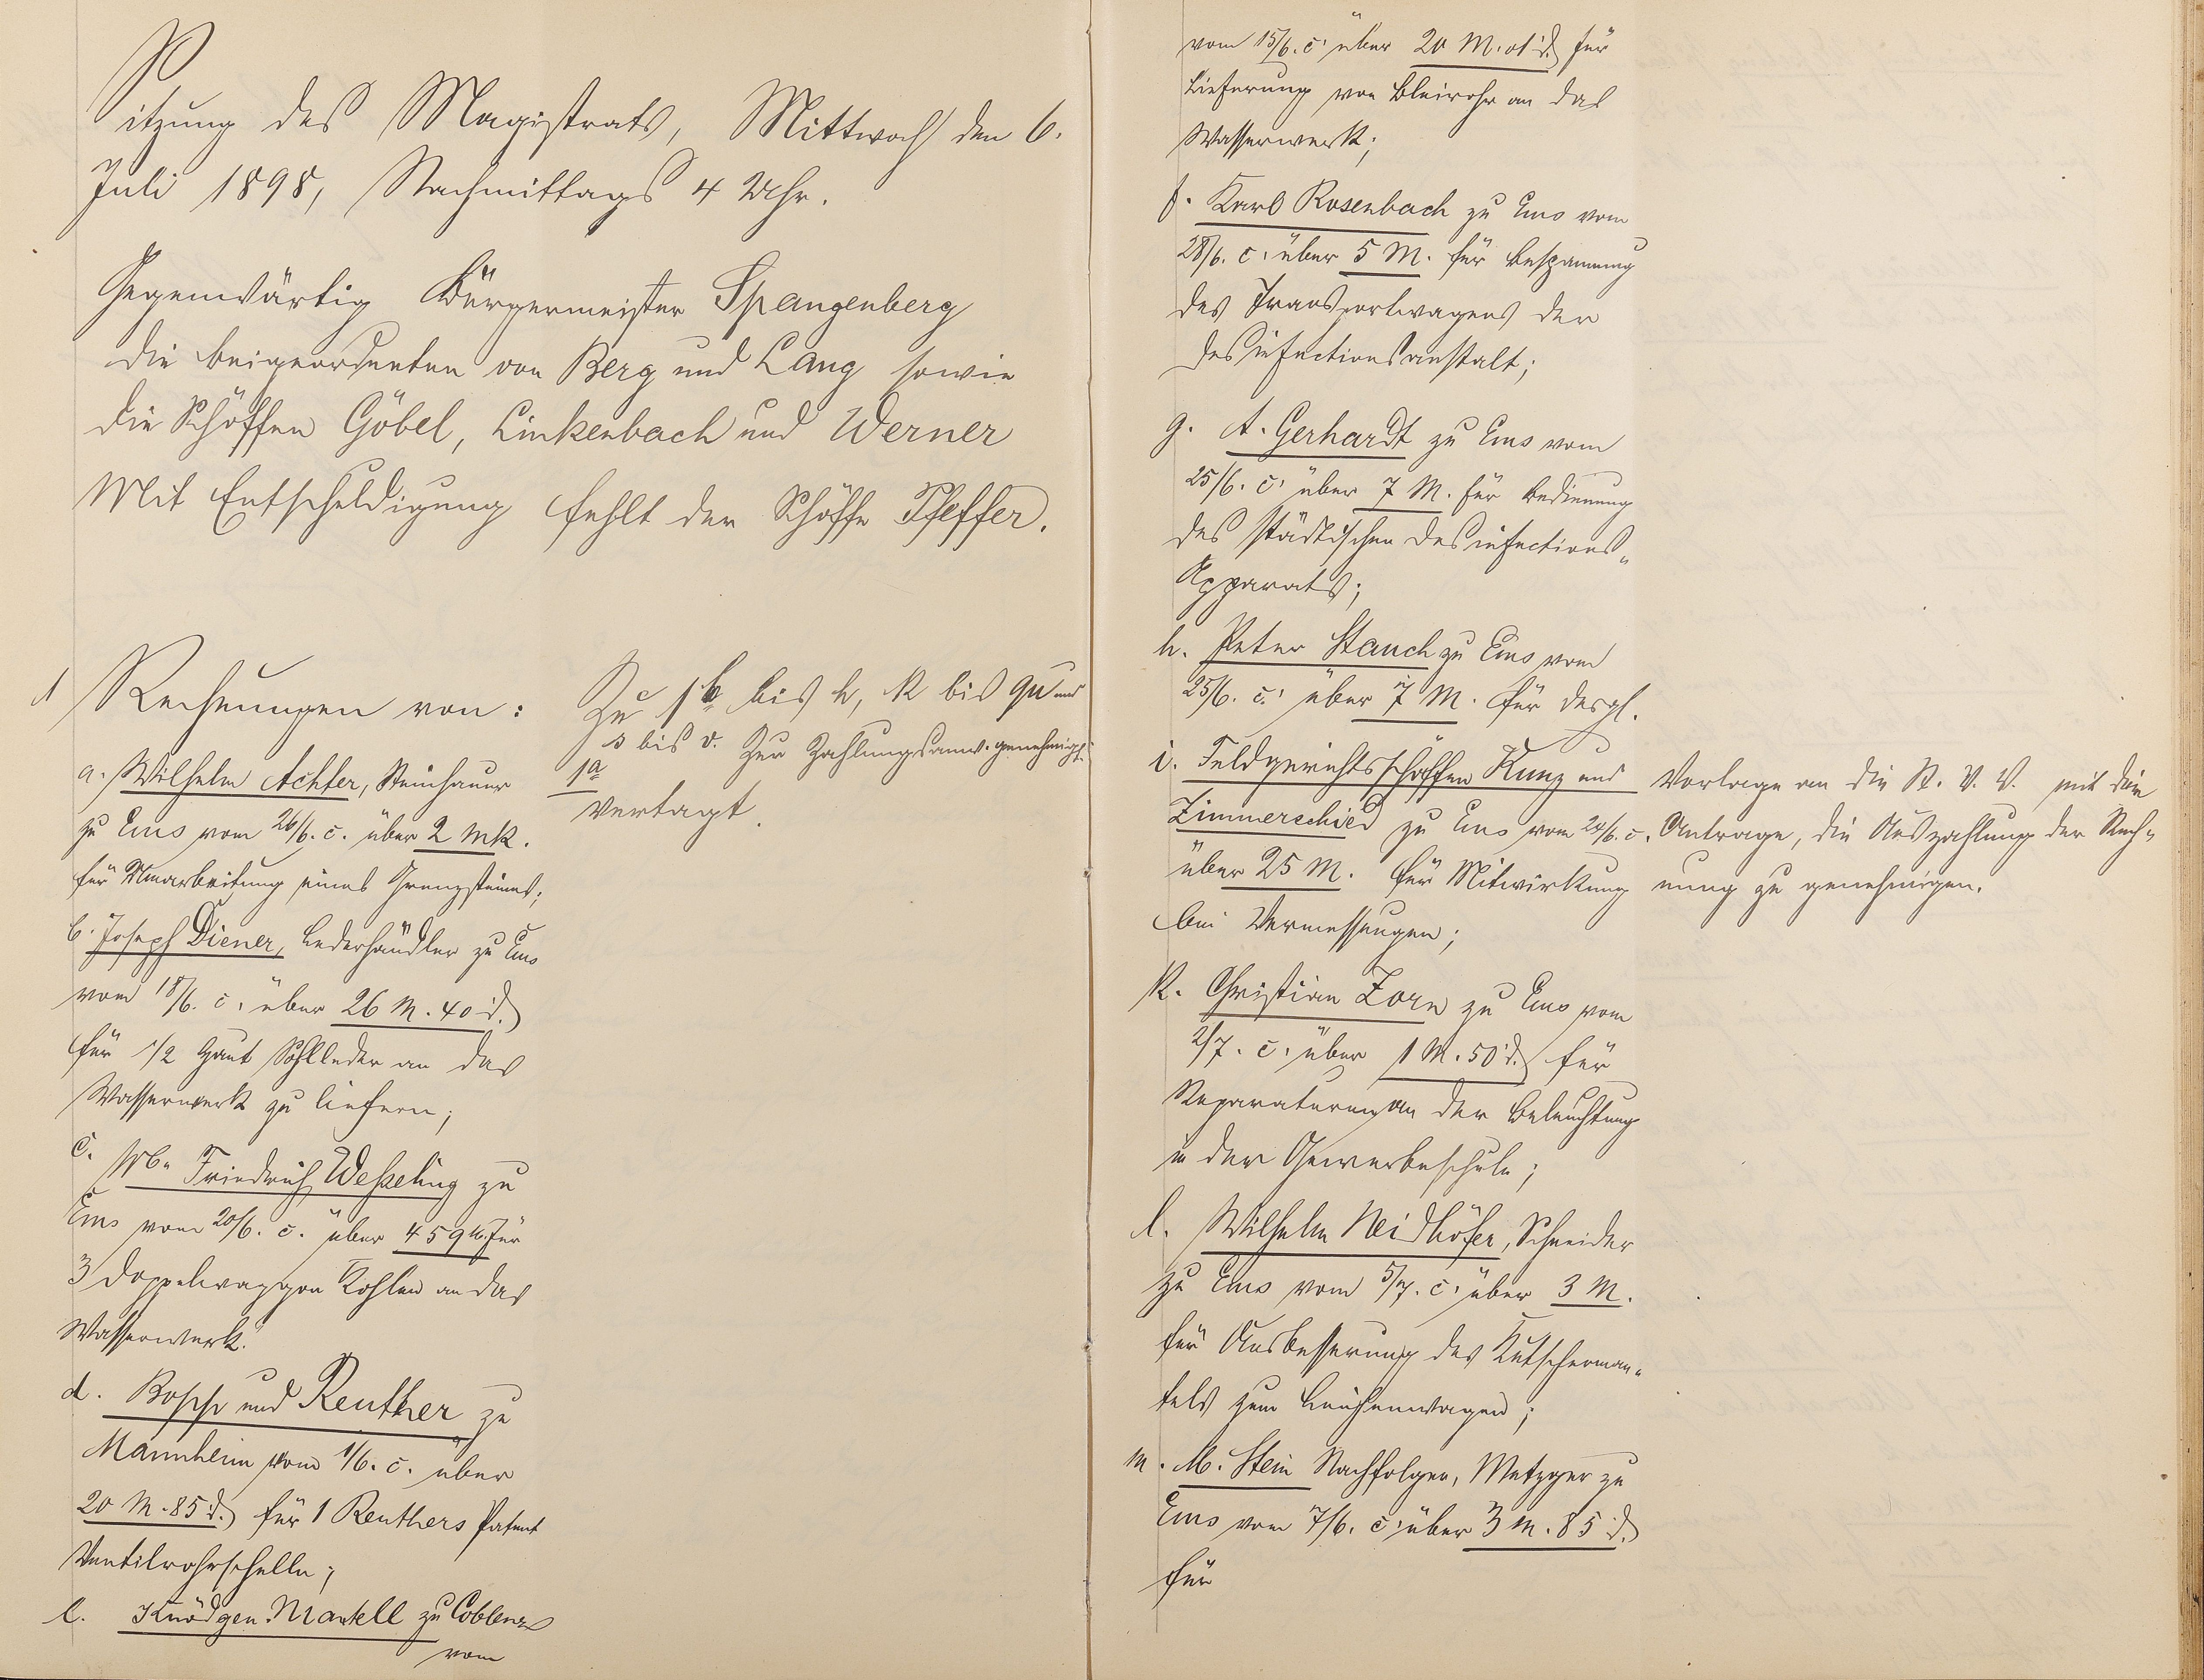 Sitzung des Magistrats, Mittwoch den 6.
Juli 1898, Nachmittags 4 Uhr.
Gegenwärtig Bürgermeister Spangenberg
die Beigeordneten von Berg und Lang sowie
die Schöffen Göbel, Linkenbach und Werner
Mit Entschuldigung fehlt der Schöffe Pfeffer.
1 Rechnungen von:
a. Wilhelm Achter, Steinhauer
zu Ems vom 26/6. c. über 2 Mk.
für Umarbeitung eines Grenzsteines;
b. Joseph Diener, Lederhändler zu Ems
vom 18/6. c. über 26 M. 40 d.
für 1/2 Haut Sohlleder an das
Wasserwerk zu liefern;
c. Friedrich Wesseling zu
Ems vom 20/6. c. über 459 M. für
3 Doppelwaggon Kohlen an das
Wasserwerk.
d. Bopp und Reuther zu
Mannheim vom 1/6. c. über
20 M. 85 d. für 1 Reuthers Patent
Ventilrohrschelle;
e. Knödgen-Mantell zu Coblenz
vom
Zu 1b bis h, k bis qu und
s bis v. Zur Zahlungsanw. genehmigt.
1a
Vertagt.
vom 15/6. c. über 20 M. 01 d. für
Lieferung von Bleirohr an das
Wasserwerk;
f. Karl Rosenbach zu Ems vom
28/6. c. über 5 M. für Bespannung
des Transportwagens der
Desinfectionsanstalt;
g. A. Gerhardt zu Ems vom
25/6. c. über 7 M. für Bedienung
des städtischen Desinfections-
Apparats;
h. Peter Stauch zu Ems vom
25/6. c. über 7 M. für desgl.
i. Feldgerichtsschöffen Kunz und
Zimmerschied zu Ems vom 24/6. c.
über 25 M. für Mitwirkung
bei Vermessungen;
Vorlage an die St. V. V. mit dem
Antrage, die Auszahlung der Rech-
nung zu genehmigen.
k. Christian Zorn zu Ems vom
2/7. c. über 1 M. 50 d. für
Reparaturen an der Beleuchtung
in der Gewerbeschule;
l. Wilhelm Neidhöfer, Schneider
zu Ems vom 5/7. c. über 3 M.
für Ausbesserung des Kutscherman-
tels zum Leichenwagen;
m. M. Stein Nachfolger, Metzger zu
Ems vom 7/6. c. über 3 M. 85 d.
für